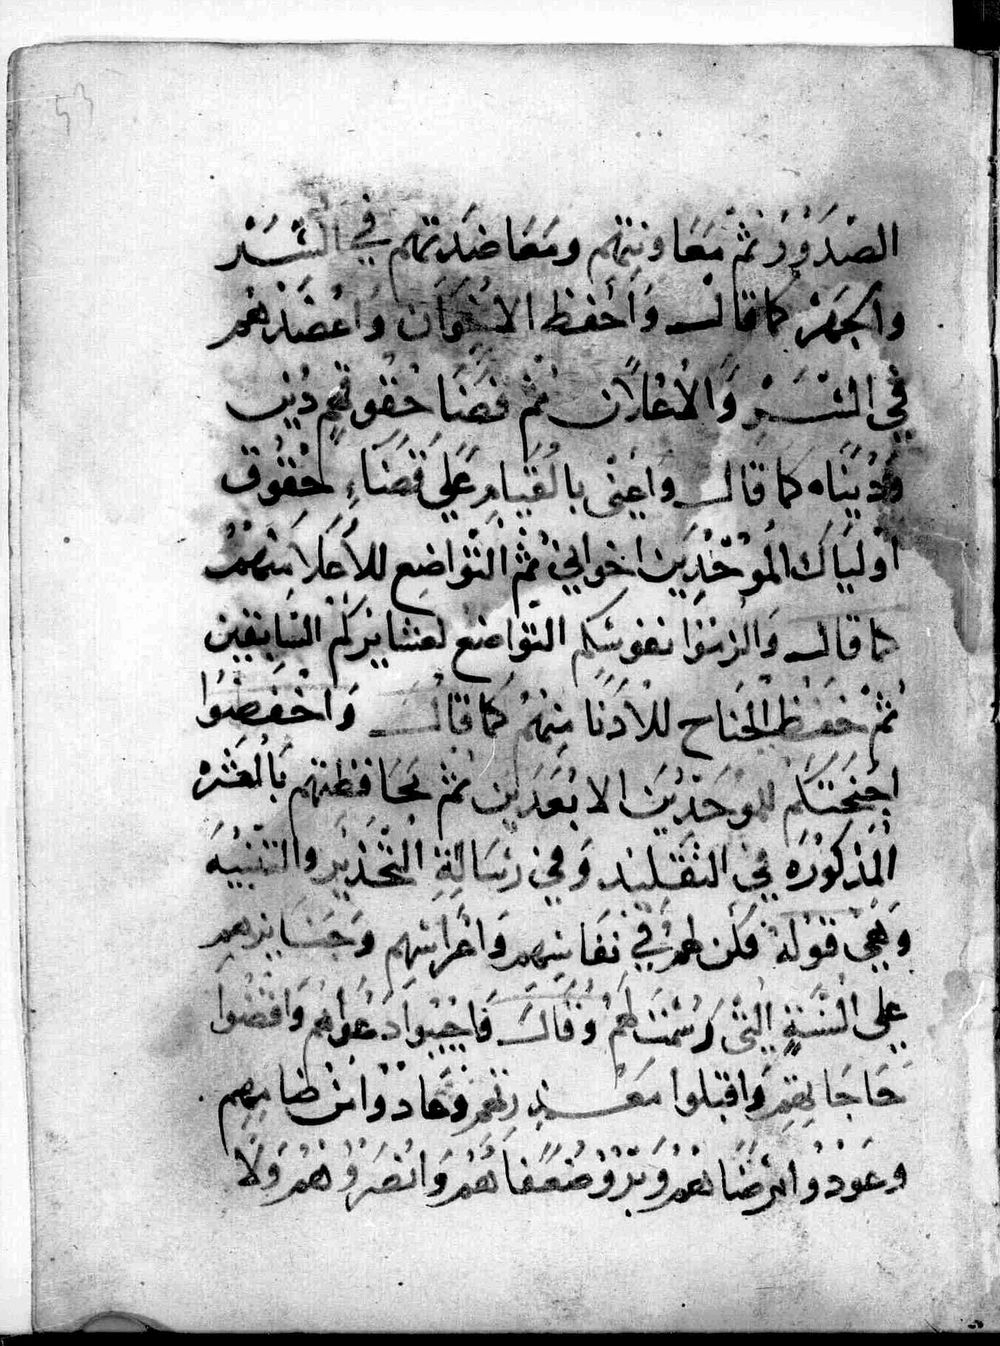 53
الصّدَوْرُ ثمّ مَعَاونتِهم ومَعَاضَدَتهم في السّرّ
والجهرْ كما قال وَاَحفظ الاخْوَان وَاعْضدْهُم
في السّرّ وَالاعْلان ثمّ قضَا حُقُوقهم دُين
وَدُنيَاه كما قال وَاَعِنّى بالقيَامِ عَلي قضَاءِ لحقُوقِ
أوْليَاَك المُوَحّدِين اخواني ثمّ التّواضع للأعلا مِنهمْ
كما قال والزِمُوا نفوسكم التّواضع لعشايركم السّابِقين
ثمّ خفظ الجنَاح للأدَنا مِنهُم كما قال وَاخْفِضُوا
اجنحَتكم للموَحّديْنَ الابعَدَين ثمّ بحَافظتهم بالعَشْره
المذكوُره في التقليد وَفي رسَالةِ التّحْذير والتنبيْه
وَهِيَ قوله فكن لهم في نفَاسهم وَاعْراسهم وَجنَايزهم
على السّنّةِ التي رسُمتَ لهُمْ وَقال فَاجيْبوا دَعواهُم وَاقضُوا
حَاجَاتِهِم وَاقبَلوا مَعْذِرتهُم وَعَادوا مَن ضامهم
وعَودُوا مرْضَاهُمْ وَبرّوْ ضُعَفَاهُمْ وَانْصرُوْهُمْ وَلَا